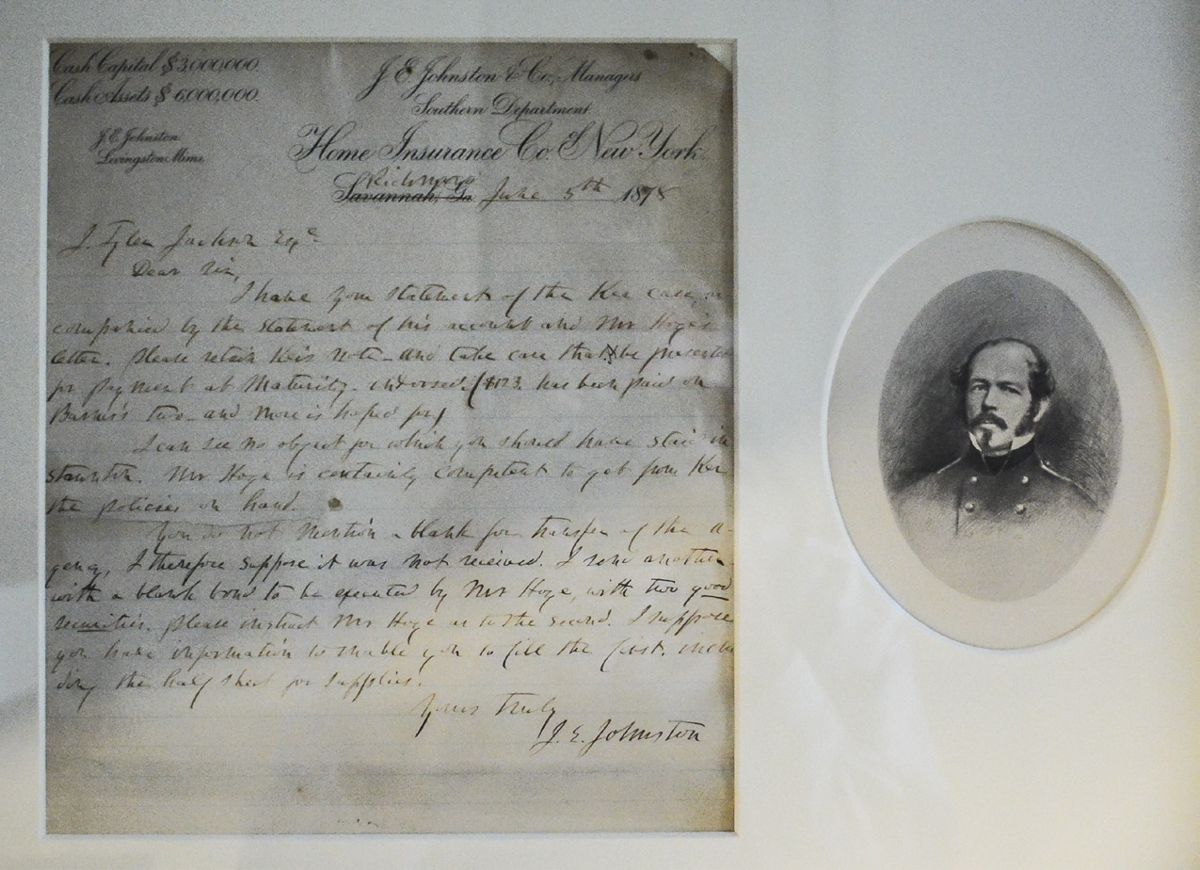 Cash Capital $3,000,000.
Cash Assets $6,000,000.
J. E. Johnston
Livingston Mims.
J. E. Johnston & Co., Managers
Southern Department
Home Insurance Co. of New York.
Richmond
Savannah, Ga. June 5th 1878
J. Tyler Jackson Esqr.
Dear Sir,
I have your statement of the Ker case
companied by the statement of his account and Mr Hoge's
letter. Please retain Ker's note and take care that be
for payment at maturity indorsed. ($123. has been paid on
two and more is hoped for)
I can see no object for which you should have staid in
Staunton. Mr Hoge is certainly competent to get from Ker
the policies on hand.
You do not mention a blank for transfer of the a-
gency, I therefore suppose it was not received. I send another
with a blank bond to be executed by Mr Hoge, with two good
securities. Please instruct Mr Hoge as to the second. I suppose
you have information to enable you to fill the first, inclu
ding the half sheet for supplies.
Yours truly
J. E. Johnston